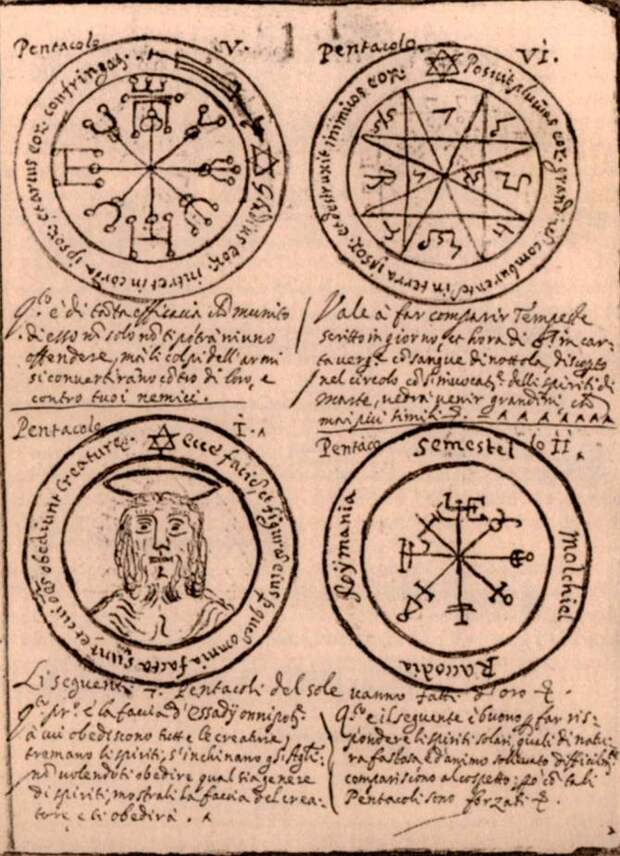 Pentacolo V.
Gladius eor. intret in corda ipsor. et arcus eor. confringat.
Pentacolo VI.
Posuit pluvias eor. grand. comburente in terra ipsor. et destruxit inimicos eor.
è di tanta efficacia munito
di esso nō solo nō ti potrà niuno
offendere, mà li colpi dell'armi
si convertirāno cōtro di loro, e
contro tuoi nemici.
Vale à far comparir Tempeste
scritto in giorno, et hora di in car-
ta verg. cō sangue di nottola, discopto
nel circolo cō invocat. delli spiriti di
Marte, vedrai venir grandini
mai più simili. A A A A A A A
Pentacolo I.
ecce facies, et figura eius omnia facta sunt, et cui obediunt Creature.
Pentacolo II
Semestel
Molchiel
Rauodia
Roÿmania
Li seguenti 7. Pentacoli del sole vanno fatti d'oro
pr.º è la faccia d'Essady onnipot.
à cui obediscono tutte le creature,
tremano li spiriti, s'inchinano gl'
nō volenduti obedire qual sia genere
di spiriti, mostrali la faccia del crea-
tore, e ti obedirà.
e il seguente è buono far ris-
pondere li spiriti solari, quali di natu-
ra fastosa, e d'animo sollevato difficilm.
compariscono al cospetto; cō tali
Pentacoli sono forzati